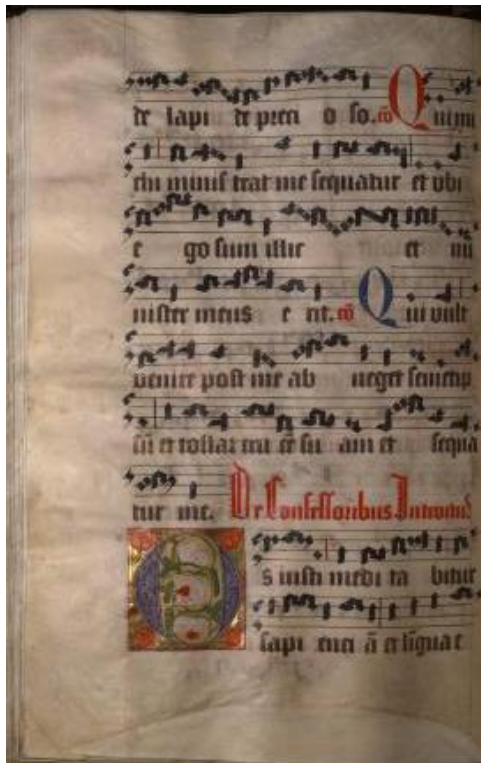 de lapi de preci o so. cō Qui mi
chi minis trat me sequatur et ubi
e go sum illic et mi
nister meus e rit. cō Qui vult
venire post me ab neget semetip
sū et tollat cru cē su am et sequa
tur me. De Confessoribus Introitus
Os iusti medi ta bitur
sapi enci ā et ligua e